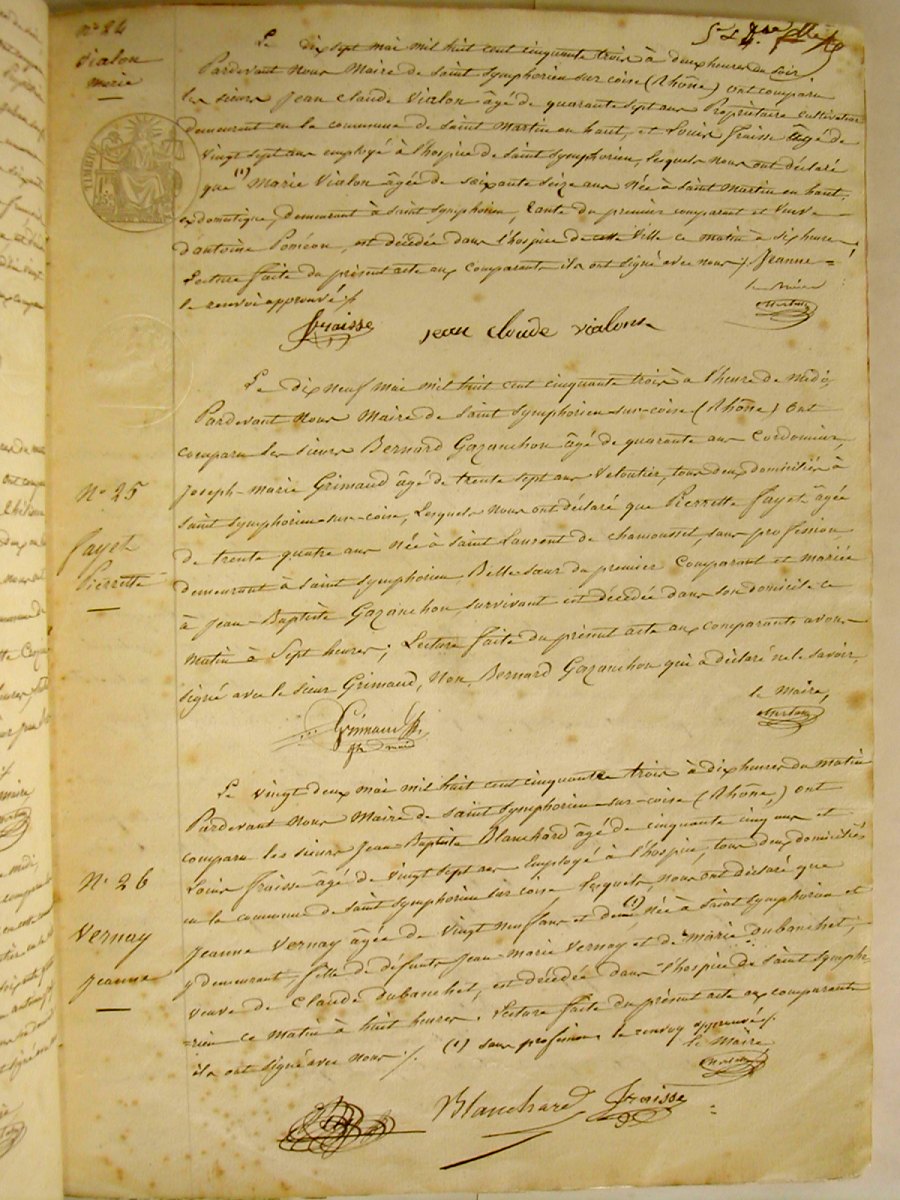 N° 24
Vialon
marie
Le dix sept mai mil huit cent cinquante trois à deux heures du soir
Pardevant Nous Maire de Saint Symphorien sur coise (Rhône) ont comparu
les sieurs Jean Claude Vialon âgé de quarante sept ans Propriétaire cultivateur
demeurant en la commune de Saint Martin en haut, et Louis Fraisse âgé de
Vingt sept ans employé à l'hospice de Saint Symphorien, lesquels nous ont déclaré
que (1) Marie Vialon âgée de soixante seize ans Née à Saint Martin en haut,
demeurant à Saint Symphorien, tante du premier comparant et Veuve
d'antoine Ponéon, est décédée dans l'hospice de cette Ville ce matin à six heures,
Lecture faite du présent acte aux comparants ils ont signé avec nous /. Jeanne =
le renvoi approuvé /.
le Maire
Fraisse
jean claude vialons
N° 25
fayet
Pierrette
Le dix neuf mai mil huit cent cinquante trois à l'heure de midi,
Pardevant Nous Maire de Saint Symphorien-sur-coise (Rhône) ont
comparu les sieurs Bernard Gazanchon âgé de quarante ans Cordonnier,
Joseph-marie Grimaud âgé de trente sept ans Veloutier, tous deux domiciliés à
Saint Symphorien-sur-coise, Lesquels Nous ont déclaré que Pierrette fayet âgée
de trente quatre ans Née à Saint Laurent de chamousset, sans profession,
demeurant à Saint Symphorien Belle sœur du premier Comparant et mariée
à Jean-Baptiste Gazanchon survivant est décédée dans son domicile ce
Matin à Sept heures; Lecture faite du présent acte aux comparants avons
signé avec le sieur Grimaud, Non Bernard Gazanchon qui a déclaré ne le savoir,
le Maire,
Grimaud
N° 26
Vernay
jeanne
Le vingt deux mai mil huit cent cinquante trois à dix heures du matin
Pardevant Nous Maire de Saint Symphorien-sur-coise (Rhône,) ont
comparu les sieurs Jean Baptiste Blanchard âgé de cinquante cinq ans et
Louis Fraisse âgé de Vingt sept ans Employé à l'hospice, tous deux domiciliés
en la commune de Saint Symphorien sur coise Lesquels Nous ont déclaré que
Jeanne Vernay âgée de Vingt Neuf ans et demi (1), Née à Saint Symphorien et
y demeurant, fille de défunts Jean-marie Vernay et de marie Dubanchet,
veuve de Claude Dubanchet, est décédée dans l'hospice de Saint Sympho-
=rien ce matin à huit heures. Lecture faite du présent acte aux comparants
ils ont signé avec nous /. (1) sans profession le renvoy approuvé /.
le Maire
Blanchard Fraisse